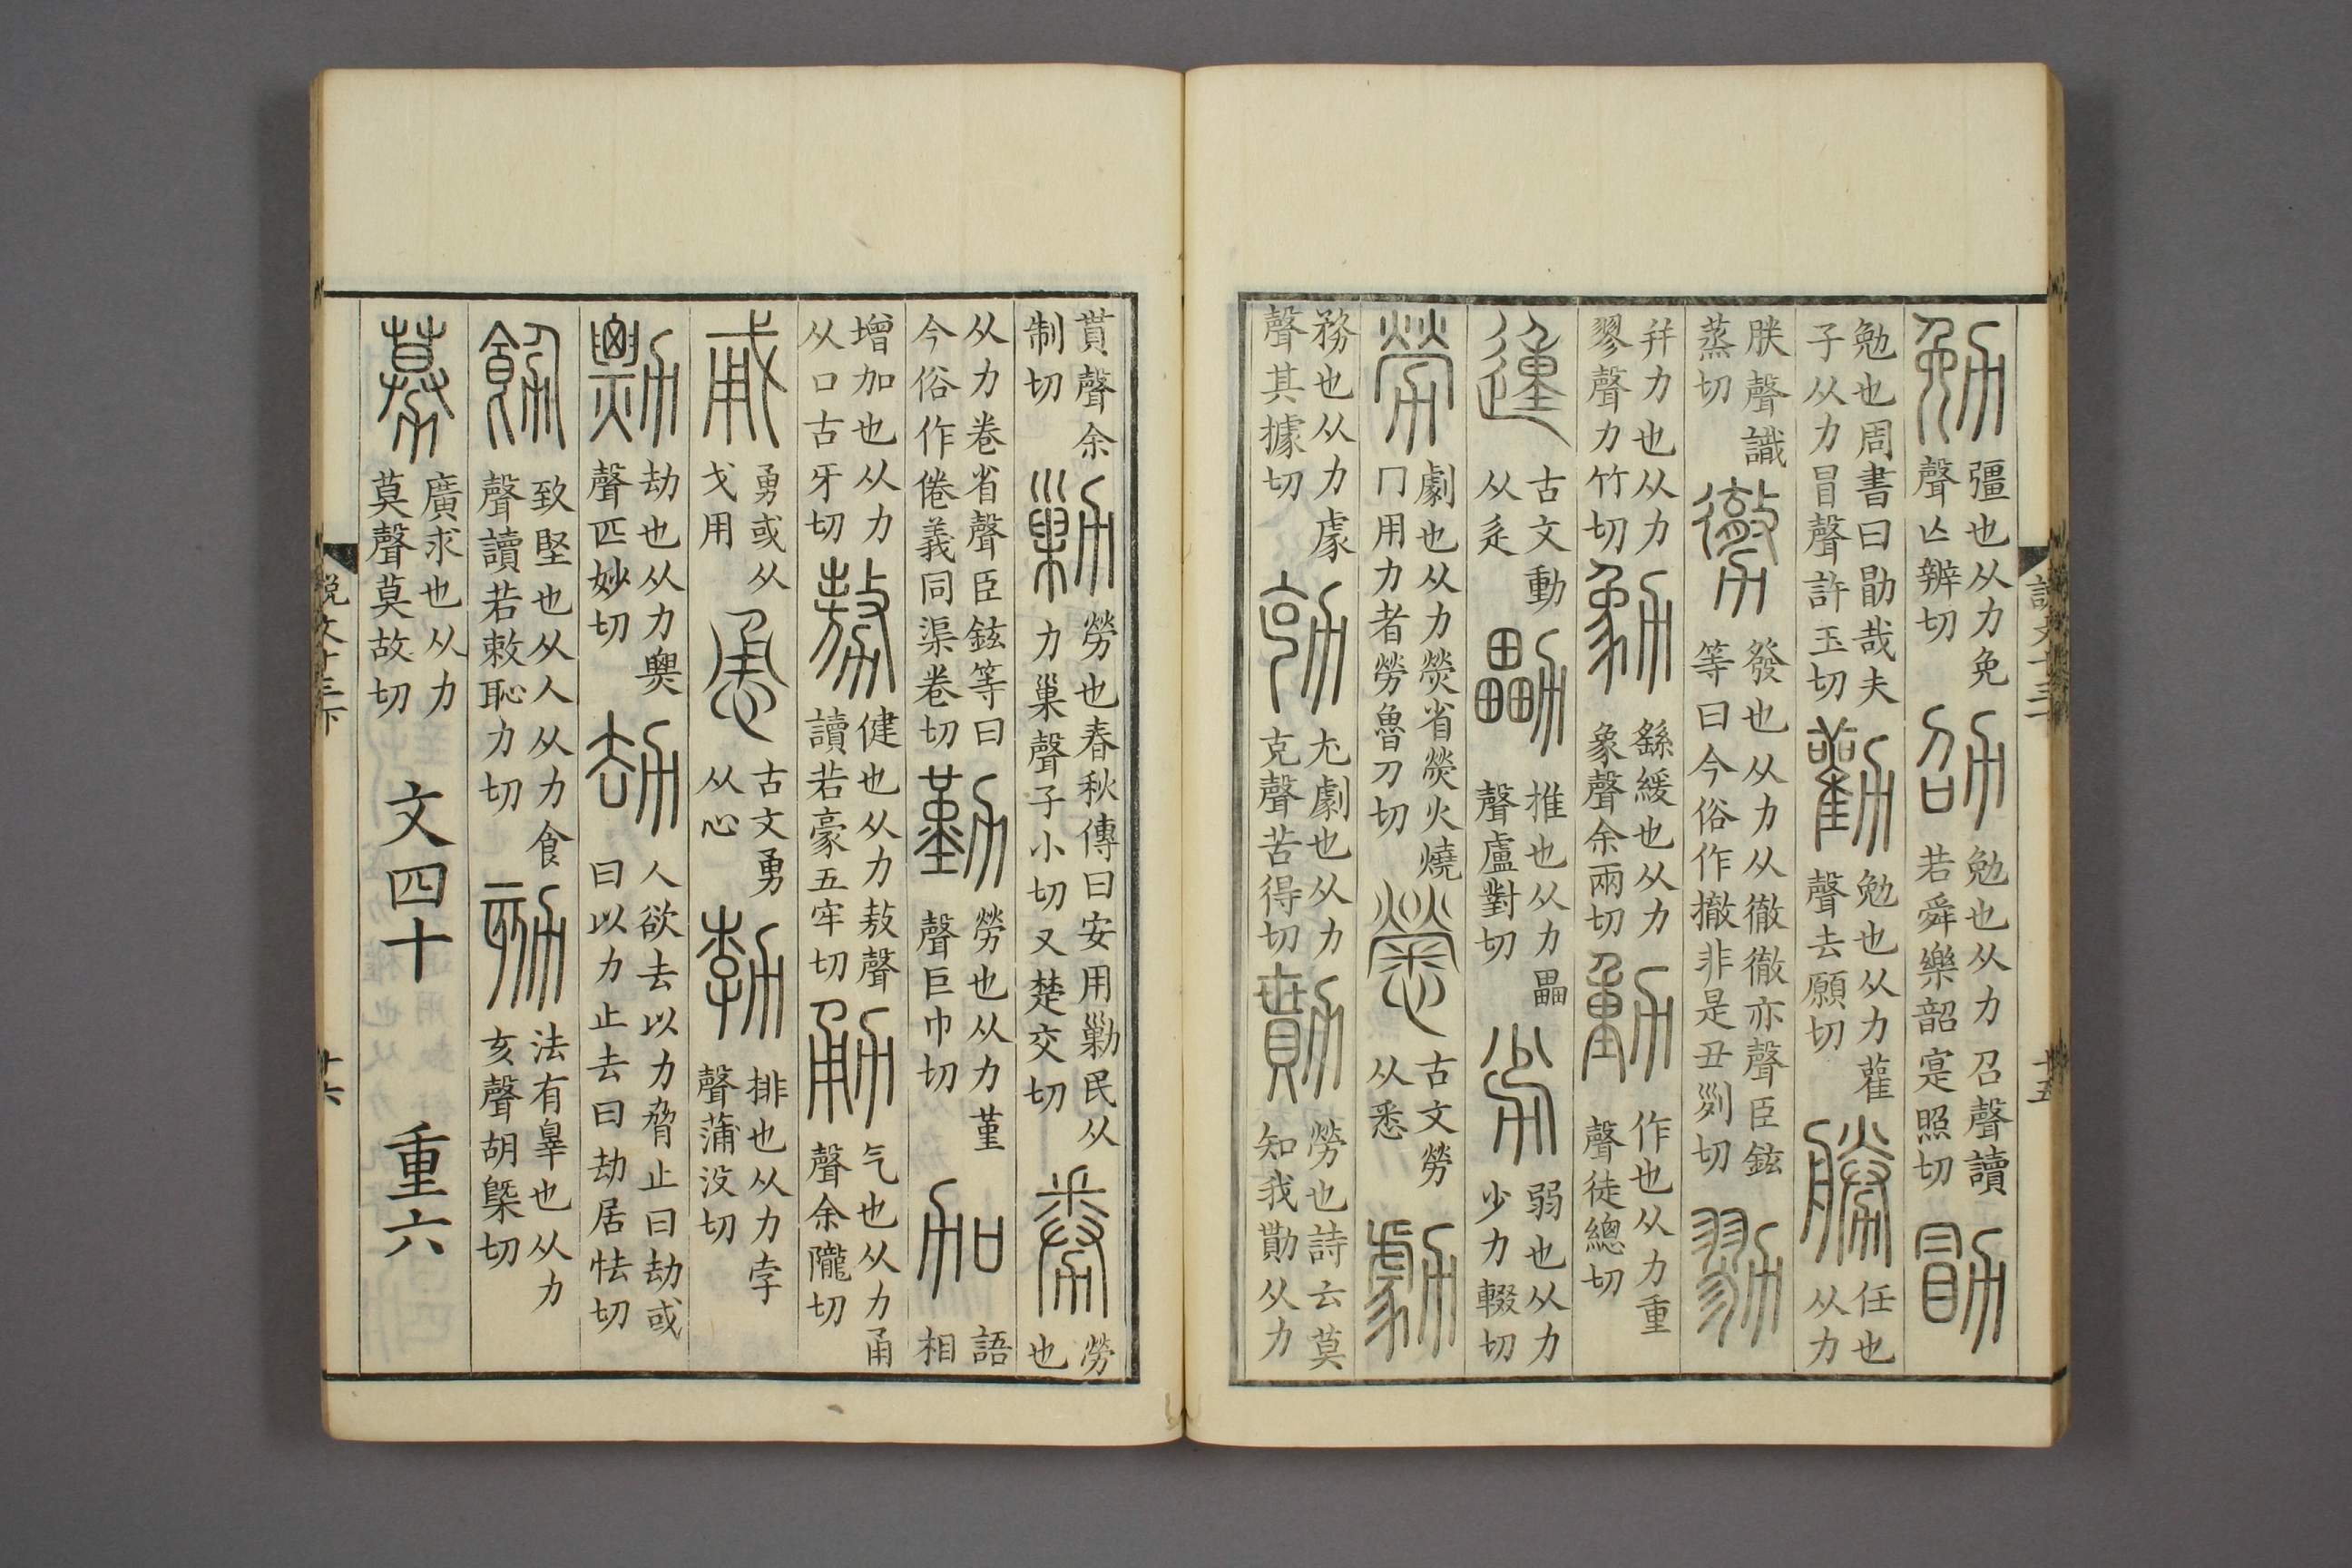 勉彊也从力免聲亾辨切劭勉也从力召聲讀若舜樂韶寔照切勖
勉也周書曰勖哉夫子从力冒聲許玉切勸勉也从力雚聲去願切勝任也从力
朕聲識蒸切勶發也从力从徹徹亦聲臣鉉等曰今俗作撤非是丑列切勠
并力也从力翏聲力竹切勨繇緩也从力象聲余兩切動作也从力重聲徒總切
𨔝古文動从辵㔣推也从力畾聲盧對切劣弱也从力少力輟切
勞劇也从力熒省熒火燒冂用力者勞魯刀切𢥒古文勞从悉勮
務也从力豦聲其據切勀尤劇也从力克聲苦得切勩勞也詩云莫知我勩从力
說文十三下
十五
貰聲余制切勦勞也春秋傳曰安用勦民从力巢聲子小切又楚交切券勞也
从力卷省聲臣鉉等曰今俗作倦義同渠卷切勤勞也从力堇聲巨巾切加語相
增加也从力从口古牙切𠢕健也从力敖聲讀若豪五牢切勇气也从力甬聲余隴切
𢦩勇或从戈用恿古文勇从心勃排也从力孛聲蒲没切
勡劫也从力𤐫聲匹妙切劫人欲去以力脅止曰劫或曰以力止去曰劫居怯切
飭致堅也从人从力食聲讀若敕恥力切劾法有辠也从力亥聲胡槩切
募廣求也从力莫聲莫故切 文四十 重六
說文十三下
十六